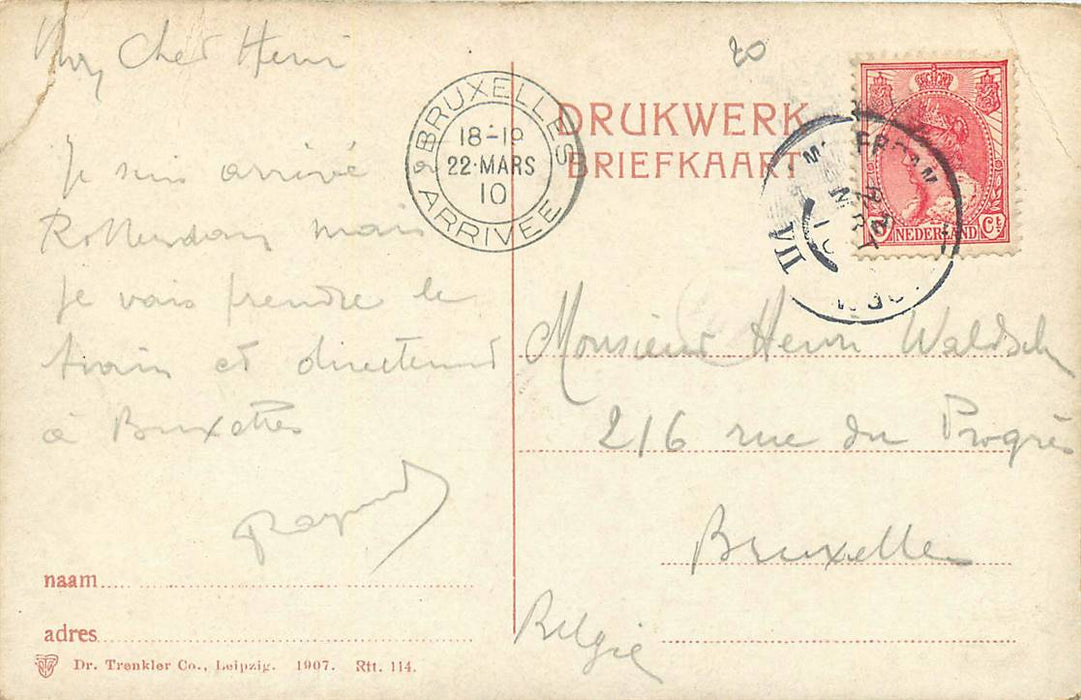 Mon Cher Henri
Je suis arrivé
Rotterdam mais
je vais prendre le
train et directement
à Bruxelles
Raymond
naam
adres
Dr. Trenkler Co., Leipzig. 1907. Rtt. 114.
BRUXELLES
18-19
22·MARS
10
ARRIVEE
20
DRUKWERK
BRIEFKAART
NEDERLAND
Ct
Monsieur Henri
216 rue du Progrès
Bruxelles
Belgie